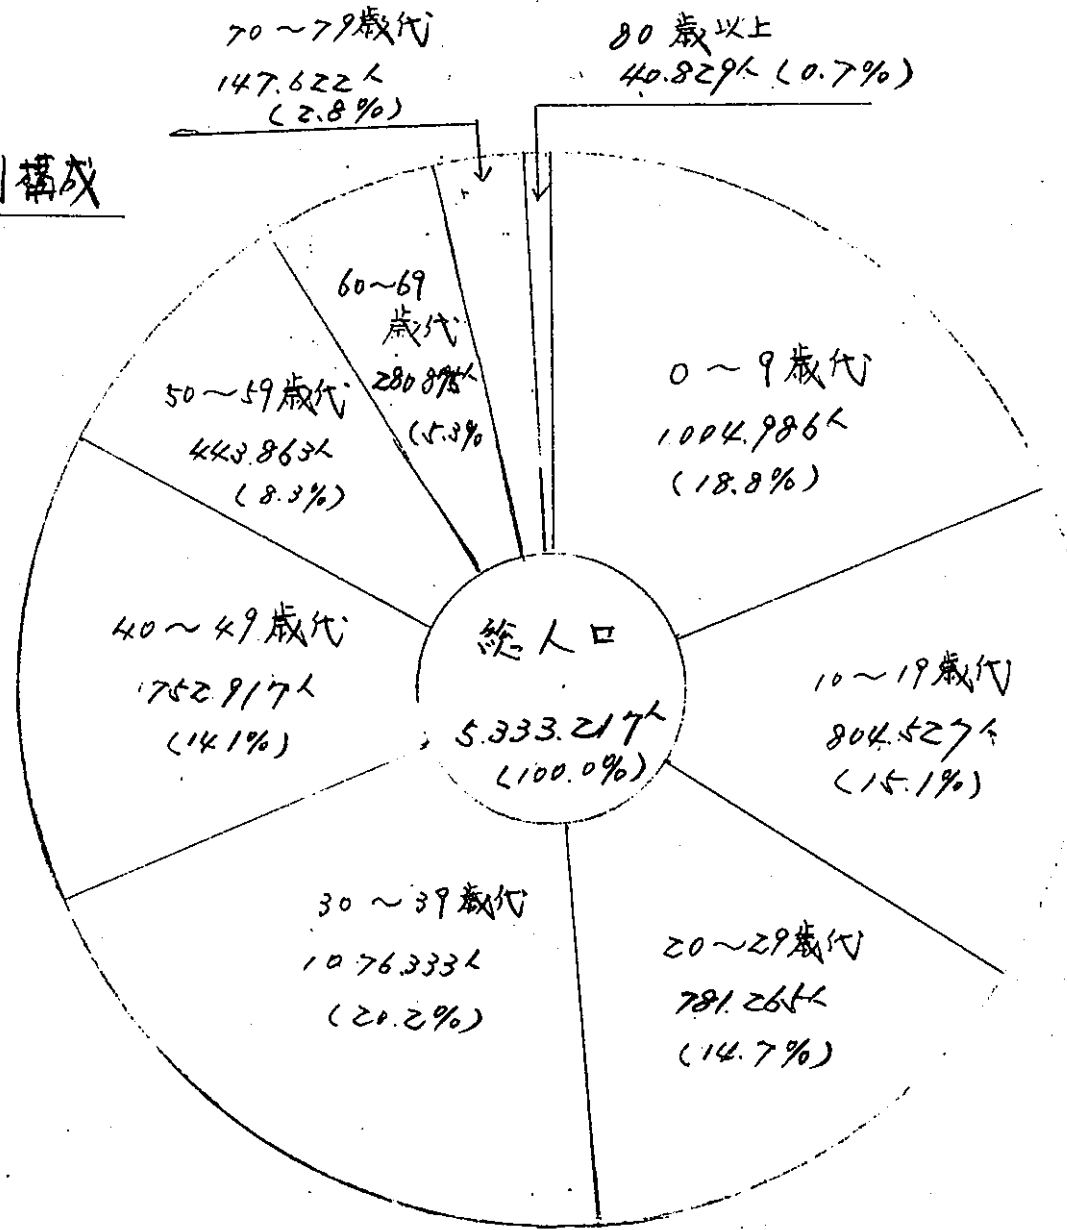 70～79歳代
147.622人
(2.8%)
80歳以上
40.829人(0.7%)
構成
60～69
歳代
(5.3%
50～59歳代
443.863人
(8.3%)
0～9歳代
1.004.986人
(18.8%)
40～49歳代
752.917人
(14.1%)
総人口
5.333.217人
(100.0%)
10～19歳代
804.527人
(15.1%)
30～39歳代
10.76.333人
(20.2%)
20～29歳代
781.265人
(14.7%)